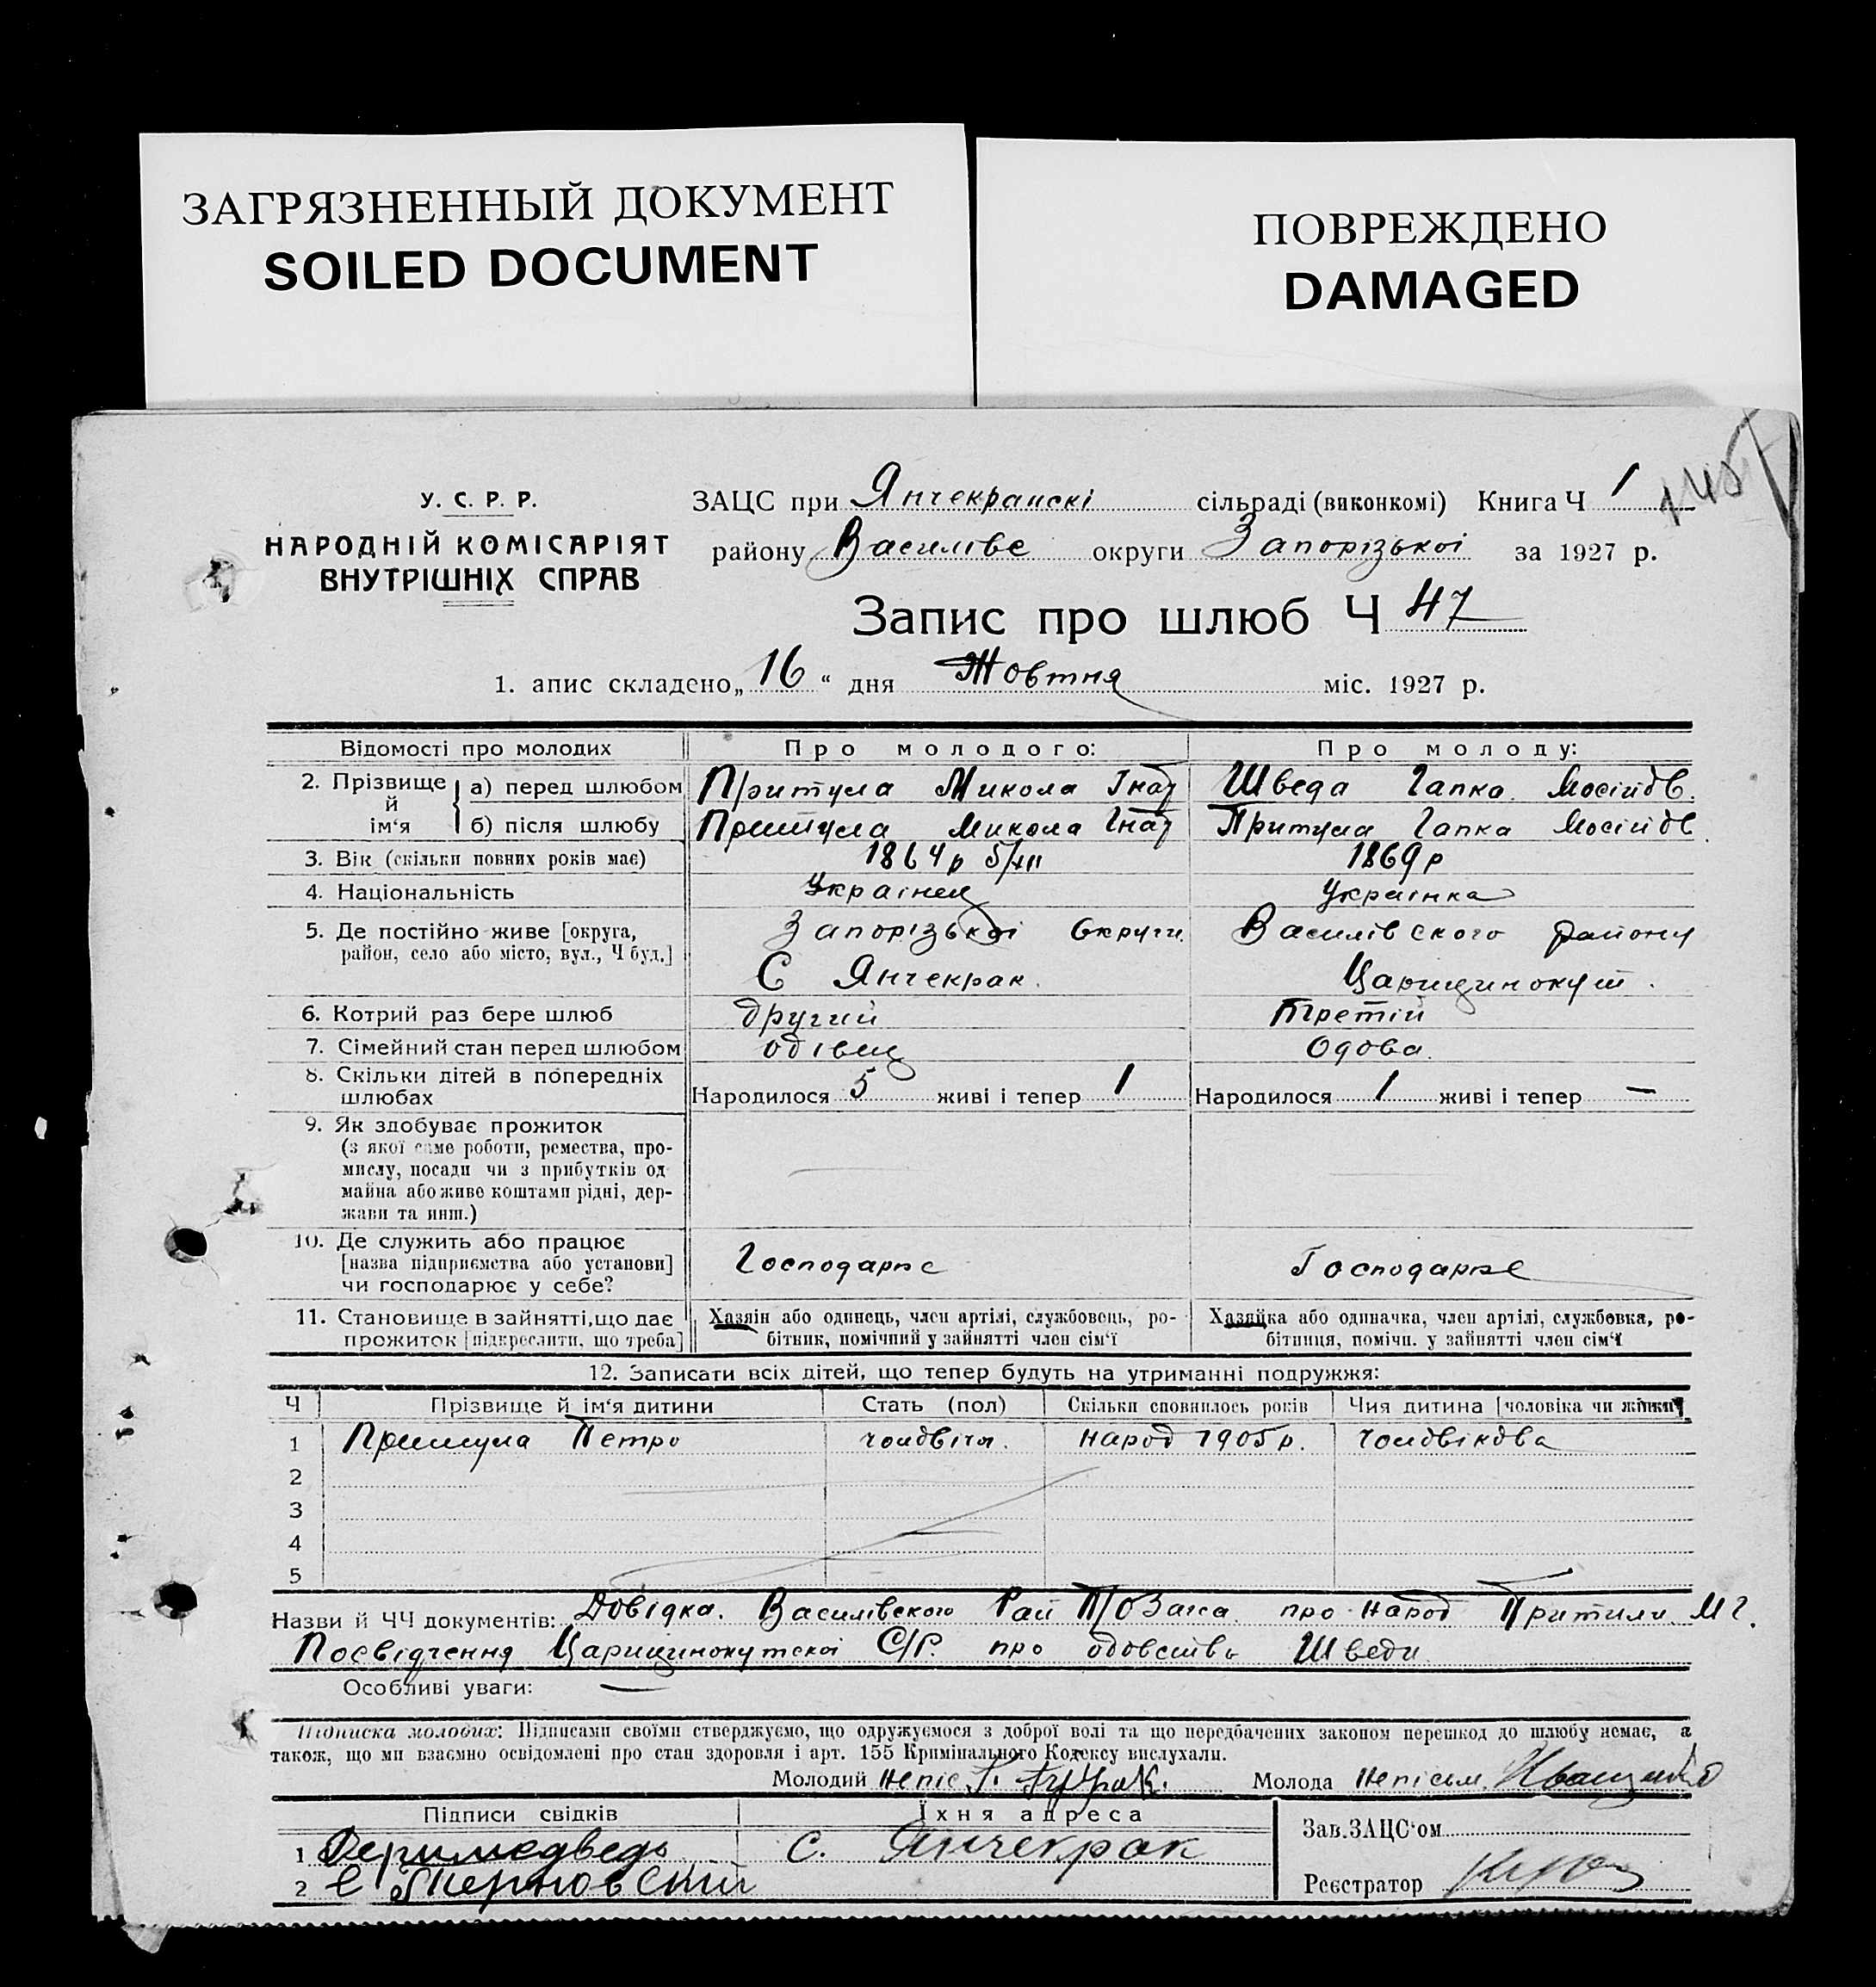 ЗАГРЯЗНЕННЫЙ ДОКУМЕНТ
SOILED DOCUMENT
ПОВРЕЖДЕНО
DAMAGED
У. С. Р. Р.
НАРОДНІЙ КОМІСАРІЯТ
ВНУТРІШНІХ СПРАВ
ЗАЦС при Янчекракскі сільраді (виконкомі) Книга Ч 1
району Василівс округи Запорізької за 1927 р.
Запис про шлюб Ч 47
1. апис складено „16“ дня Жовтня міс. 1927 р.
Відомості про молодих Про молодого: Про молоду:
2. Прізвище й ім‘я а) перед шлюбом Притула Микола Гнат Шведа Гапка Мосійов.
б) після шлюбу Притула Микола Гнат Притула Гапка Мосійов.
3. Вік (скільки повних років має) 1864р 5/XII 1869р
4. Національність Українец Українка
5. Де постійно живе [округа, Запорізької Округи Василівского району
район, село або місто, вул., Ч буд.] С Янчекрак. Царицинокут.
6. Котрий раз бере шлюб другий Третій
7. Сімейний стан перед шлюбом одівец Одова.
8. Скільки дітей в попередніх шлюбах Народилося 5 живі і тепер 1 Народилося 1 живі і тепер —
9. Як здобуває прожиток
(з якої саме роботи, ремества, про-
мислу, посади чи з прибутків од
майна або живе коштами рідні, дер-
жави та инш.)
10. Де служить або працює
[назва підприємства або установи] Господарює Господарює
чи господарює у себе?
11. Становище в зайнятті, що дає Хазяін або одинець, член артілі, службовець, ро- Хазяйка або одиначка, член артілі, службовка, ро-
прожиток [підкреслити, що треба] бітник, помічний у зайнятті член сім‘ї бітниця, помічн. у зайнятті член сім‘ї
12. Записати всіх дітей, що тепер будуть на утриманні подружжя:
Ч Прізвище й ім‘я дитини Стать (пол) Скільки сповнилось років Чия дитина [чоловіка чи жінки]
1 Притула Петро чоловіча. народ 1905р. чоловікова
2
3
4
5
Назви й ЧЧ документів: Довідка. Василівского Рай про народ Притули М Г.
Посвідчення Царицинокутской С/Р. про одовство Шведи
Особливі уваги: —
Підписка молодих: Підписами своїми стверджуємо, що одружуємося з доброї волі та що передбачених законом перешкод до шлюбу немає, а
також, що ми взаємно освідомлені про стан здоровля і арт. 155 Кримінального Кодексу вислухали.
Молодий непис Молода неписьм. Иващенко
Підписи свідків Їхня адреса
1 с. Янчекрак
2
Зав. ЗАЦС‘ом
Реєстратор